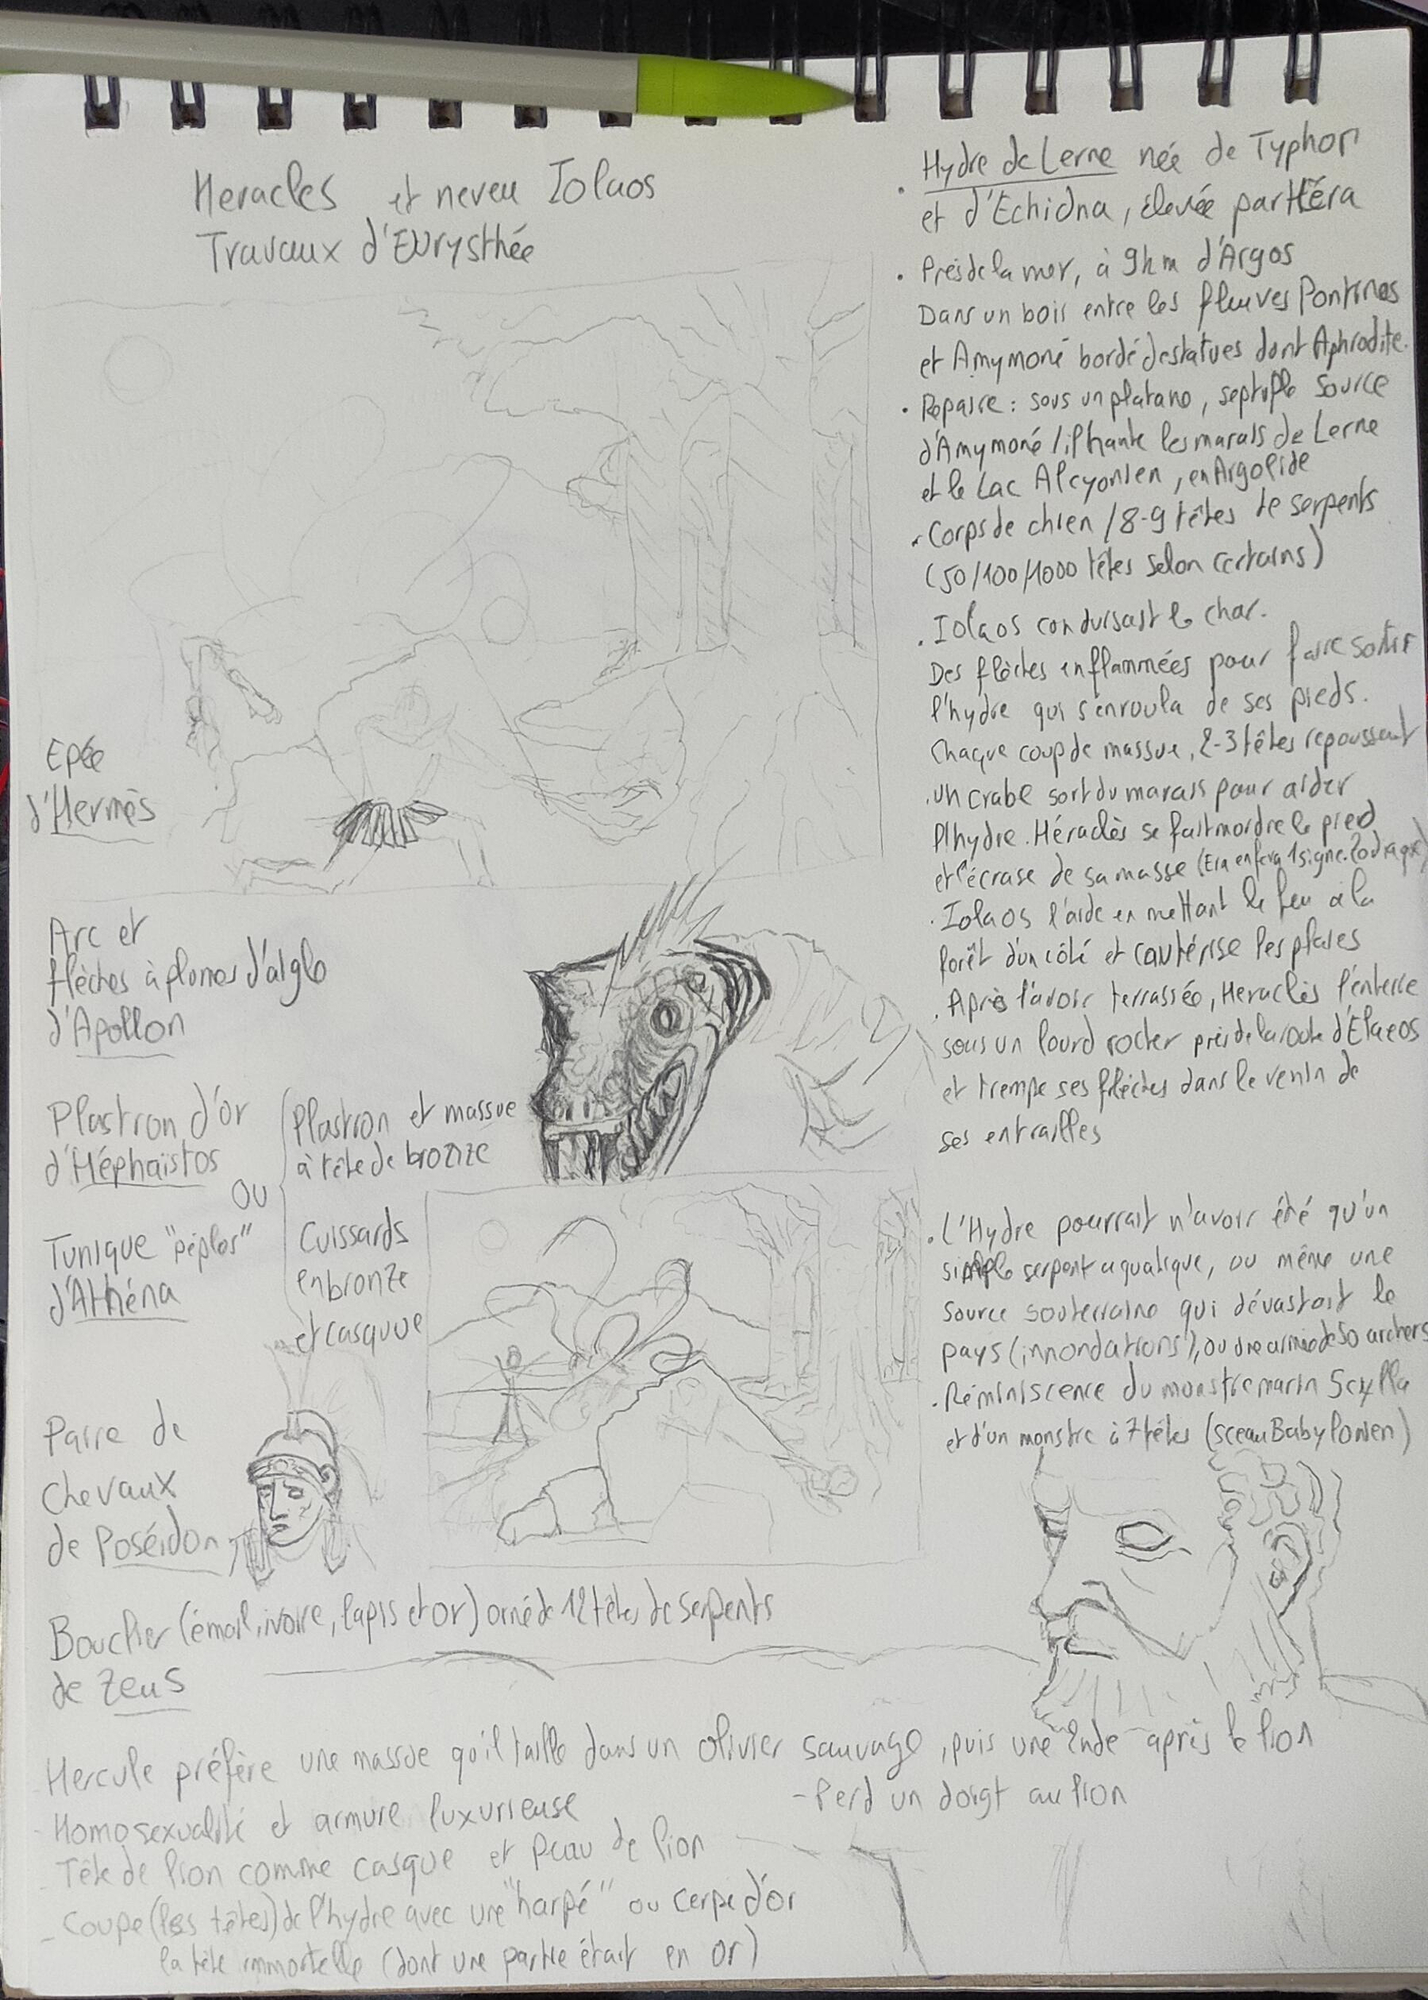 Heracles et neveu Iolaos
Travaux d'Eurysthée
Epée
d'Hermès
Arc et
flèches à plumes d'aigle
d'Apollon
Plastron d'or
d'Héphaïstos
OU
Tunique "péplos"
d'Athéna
Plastron et massue
à tête de bronze
Cuissards
en bronze
et casque
Paire de
chevaux
de Poséidon
Bouclier (émail, ivoire, lapis et or) orné de 12 têtes de serpents
de Zeus
Hercule préfère une massue qu'il taille dans un olivier sauvage, puis une 2nde après le lion
- Perd un doigt au lion
- Homosexualité et armure luxurieuse
- Tête de lion comme casque et peau de lion
- Coupe (les têtes) de l'hydre avec une "harpé" ou cerpe d'or
la tête immortelle (dont une partie était en or)
• Hydre de Lerne née de Typhon
et d'Echidna, élevée par Héra
• Près de la mer, à 9km d'Argos
Dans un bois entre les fleuves Pontinos
et Amymoné bordé de statues dont Aphrodite.
• Repaire : sous un platane, septuple source
d'Amymoné / hante les marais de Lerne
et le Lac Alcyonien, en Argolide
• Corps de chien / 8-9 têtes de serpents
(50/100/1000 têtes selon certains)
• Iolaos conduisait le char.
Des flèches enflammées pour faire sortir
l'hydre qui s'enroula de ses pieds.
Chaque coup de massue, 2-3 têtes repoussent
• Un crabe sort du marais pour aider
l'hydre. Héraclès se fait mordre le pied
et l'écrase de sa masse (Era en fera 1 signe Zodiaque)
• Iolaos l'aide en mettant le feu à la
forêt d'un côté et cautérise les plaies
• Après l'avoir terrassée, Heraclès l'enterre
sous un lourd rocher près de la route d'Elaeos
et trempe ses flèches dans le venin de
ses entrailles
• L'Hydre pourrait n'avoir été qu'un
simple serpent aquatique, ou même une
source souterraine qui dévastait le
pays (innondations), ou une armée de 50 archers
• Réminiscence du monstre marin Scylla
et d'un monstre à 7 têtes (sceau Babylonien)